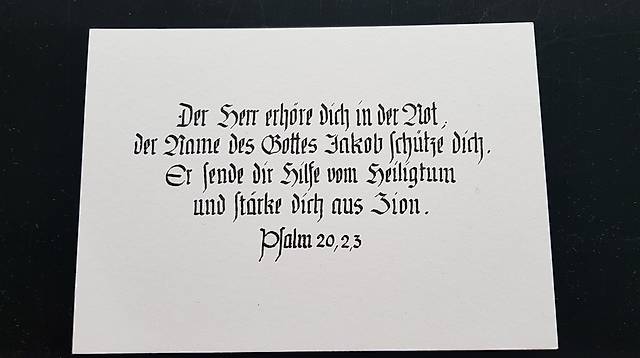 Der Herr erhöre dich in der Not,
der Name des Gottes Jakob schütze dich.
Er sende dir Hilfe vom Heiligtum
und stärke dich aus Zion.
Psalm 20,2,3